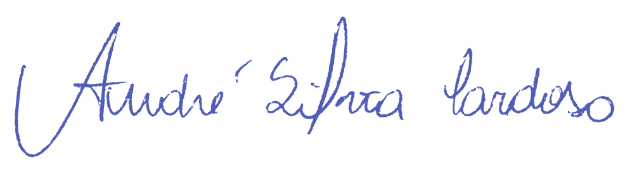 André Silva Cardoso